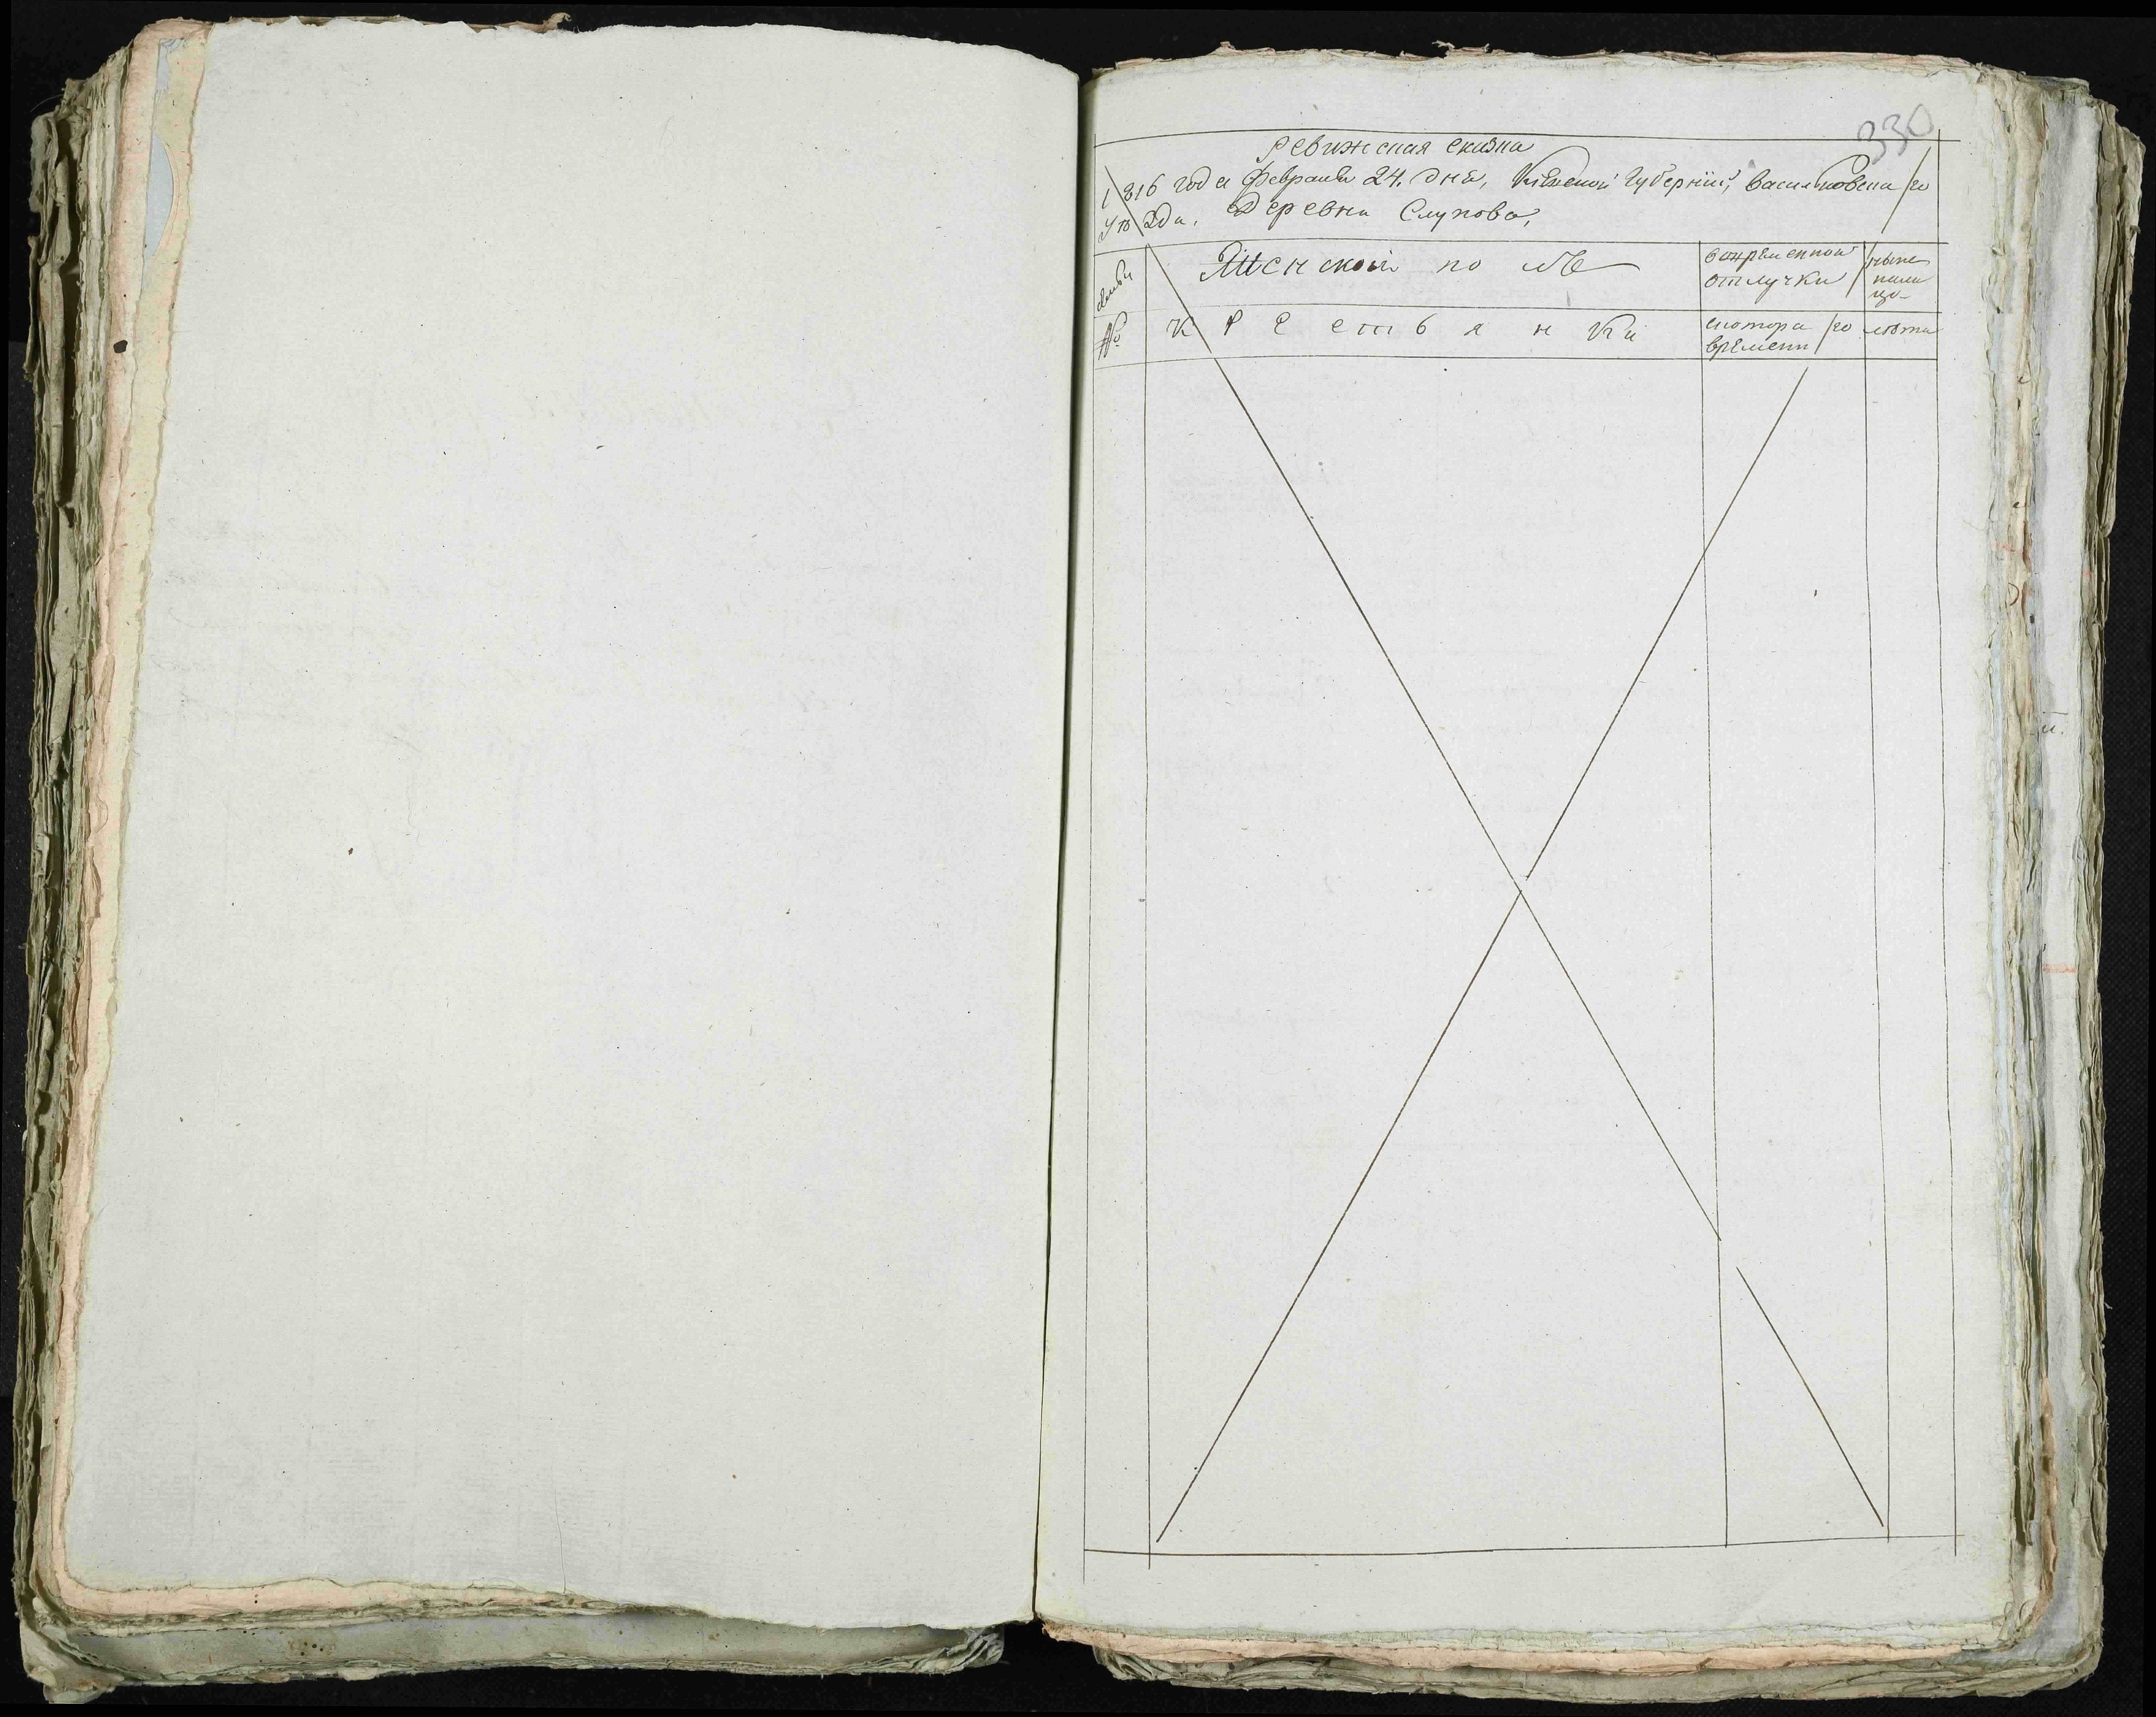 330
Ревижская сказка
1816 года Февраля 24. дня, Киевской Губернїи, Васильковска/го
Уѣзда. Деревни Слупова,
Женской полъ
вовременной
отлучки
ныне
нали
цо-
семьи
№
Крестьянки
скотора/го
времени
лѣта